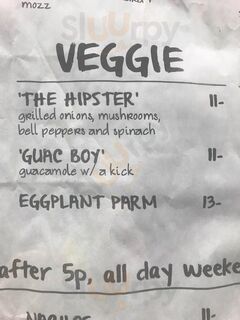 mozz
VEGGIE
'THE HIPSTER' 11-
grilled onions, mushrooms,
bell peppers and spinach
'GUAC BOY' 11-
guacamole w/ a kick
EGGPLANT PARM 13-
after 5p, all day weeke
11-